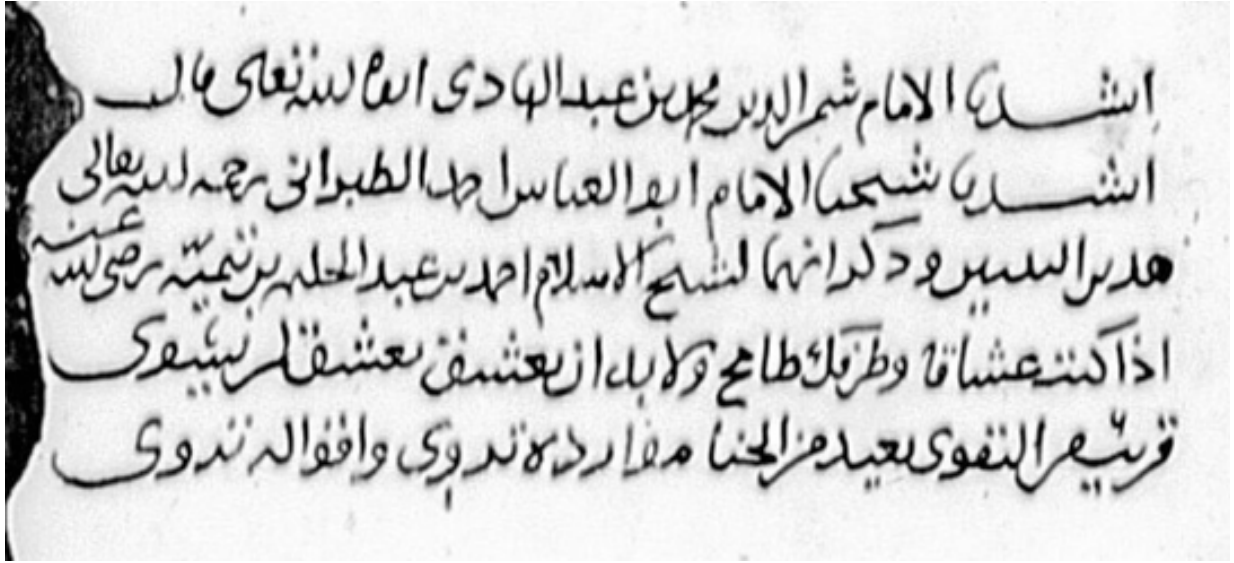 انشدنا الامام شمس الدين محمد بن عبد الهادى ابقاه الله تعالى قال
انشدنا شيخنا الامام ابو العباس احمد الطبرانى رحمه الله تعالى
هذين البيتين وذكر انهما لشيخ الاسلام احمد بن عبد الحليم بن تيميّة رضى الله عنه
اذا كنت عشاقا وطرفك طامح ولا بد ان تعشق تعشق لمن
قريب من التقوى بعيد من الخنا تروى واقواله تروى